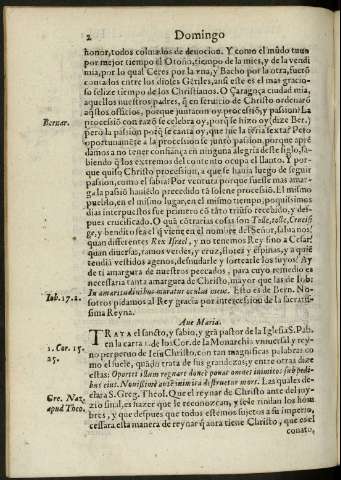 2 Domingo
honor, todos colmados de deuocion. Y como el mũdo tuuo
por mejor tiempo el Otoño, tiempo de la mies, y de la vendi
mia, por lo qual Ceres por la vna, y Bacho por la otra, fuerõ
contados entre los dioses Gentiles, ansi este es el mas gracio-
so felize tiempo de los Christianos. O Çaragoça ciudad mia,
aquellos nuestros padres, q̃ en seruicio de Christo ordenarõ
aq̃stos officios, porque juntaron oy procession, y passion? La
procession con razõ se celebra oy, porq̃ se hizo oy (dize Ber.)
Bernar.
però la passion porq̃ se canta oy, que fue la feria sexta? Pero
oportunamẽte a la procession se juntò passion, porque aprẽ
damos a no tener confiança en ninguna alegria deste siglo, sa-
biendo q̃ los extremos del contento ocupa el llanto. Y por-
que quiso Christo procession, a que se hauia luego de seguir
passion, como el sabia? Por ventura porque fuesse mas amar-
ga la passiõ hauiẽdo precedido tã solene procession. El mismo
pueblo, en el mismo lugar, en el mismo tiempo, poquissimos
dias interpuestos fue primero cõ tãto triũfo recebido, y des-
pues crucificado. O quã cõtrarias cosas son Tolle, tolle, Crucifi
ge, y bendito sea el q̃ viene en el nombre del Señor, sabia nos!
quan differentes Rex Israel, y no tenemos Rey sino a Cesar!
quan diuersas, ramos verdes, y cruz, flores y espinas, y a quiẽ
tendiã vestidos agenos, desnudarle y sortearle los suyos! Ay
de ti amargura de nuestros peccados, para cuyo remedio es
necessaria tanta amargura de Christo, mayor que las de Iob:
Iob. 17. 2.
In amaritudinibus moratur oculus meus. Esto es de Bern. No-
sotros pidamos al Rey gracia por intercession de la sacratis-
sima Reyna.
Aue Maria.
TRATA el sancto, y sabio, y grã pastor de la Iglesia S. Pab.
en la carta 1. de los Cor. de la Monarchia vniuersal y rey-
1. Cor. 15.
25.
no perpetuo de Iesu Christo, con tan magnificas palabras co
mo el suele, quãdo trata de sus grandezas, y entre otras dize
estas: Oportet illum regnare donec ponat omnes inimicos sub pedi-
bus eius. Nouissimè autẽ inimica destruetur mors. Las quales de-
Gre. Naz.
apud Theo.
clara S. Greg. Theol. Que el reynar de Christo ante del juy-
zio final, es hazer que le reconozcan, y se le rindan los hom
bres, y que despues que todos estemos sujetos a su imperio,
cessara esta manera de reynar q̃ aora tiene Christo, que es el
conato,